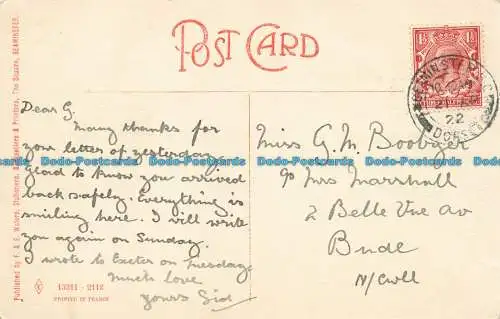 POST CARD
Dear G.
Many thanks for
your letter of yesterday
glad to know you arrived
back safely. Everything is
smiling here. I will write
you again on Sunday.
I wrote to Exeter on Tuesday
much love
yours Sid
Miss G. M. Boobyer
℅ Mrs Marshall
2 Belle Vue av
Bude
N/Cwll
BEAMINSTER
22
DORSET
Dodo-Postcards Dodo-Postcards Dodo-Postcards
Published by F. & E. Stationers, Booksellers & Printers, The Square, BEAMINSTER.
13211 - 2112
PRINTED IN FRANCE